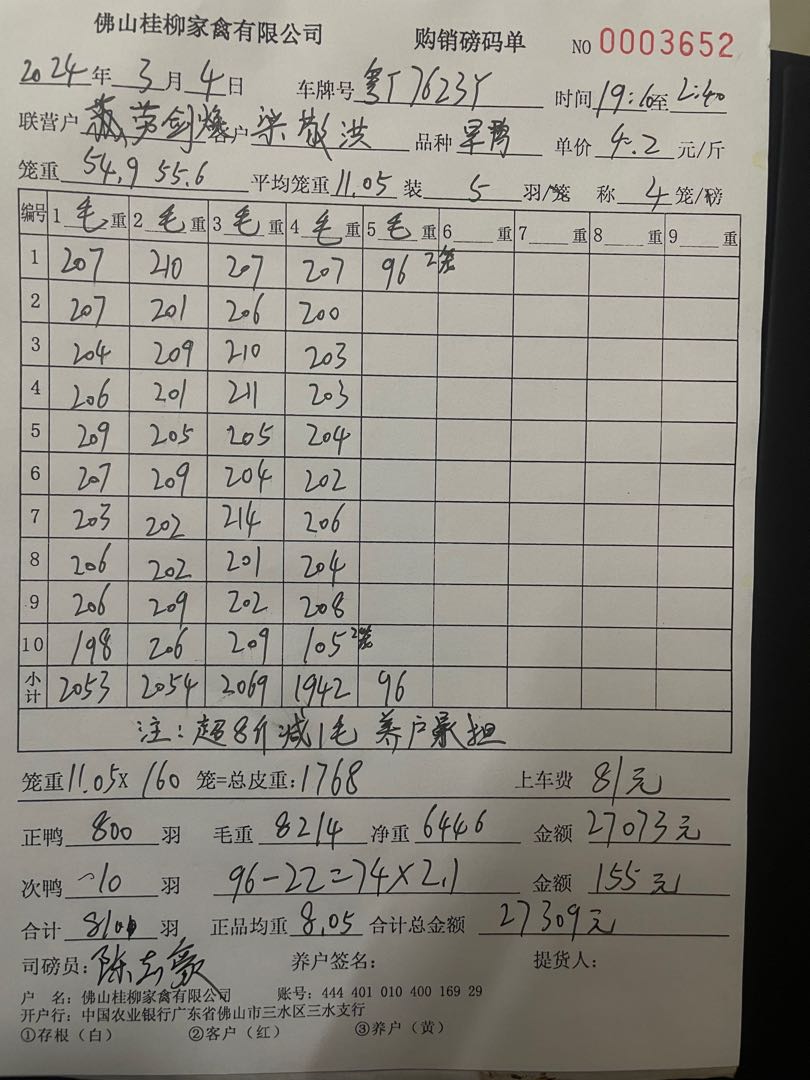 佛山桂柳家禽有限公司 购销磅码单 NO 0003652
2024年 3月 4日 车牌号 粤T7623Y 时间 19:10至2:40
联营户 劳剑 客户 梁 洪 品种 旱鸭 单价 4.2 元/斤
笼重 54.9 55.6 平均笼重 11.05 装 5 羽/笼 称 4 笼/磅
编号 1 毛 重 2 毛 重 3 毛 重 4 毛 重 5 毛 重 6 重 7 重 8 重 9 重
1 207 210 207 207 96 2笼
2 207 201 206 200
3 204 209 210 203
4 206 201 211 203
5 209 205 205 204
6 207 209 204 202
7 203 202 214 206
8 206 202 201 204
9 206 209 202 208
10 198 206 209 105 2笼
小计 2053 2054 2069 1942 96
注: 超8斤减1毛 养户承担
笼重 11.05X 160 笼=总皮重: 1768 上车费 81元
正鸭 800 羽 毛重 8214 净重 6446 金额 27073元
次鸭 10 羽 96-22=74×2.1 金额 155元
合计 810 羽 正品均重 8.05 合计总金额 27309元
司磅员: 陈志豪 养户签名: 提货人:
户 名: 佛山桂柳家禽有限公司 账号: 444 401 010 400 169 29
开户行: 中国农业银行广东省佛山市三水区三水支行
①存根(白) ②客户(红) ③养户(黄)